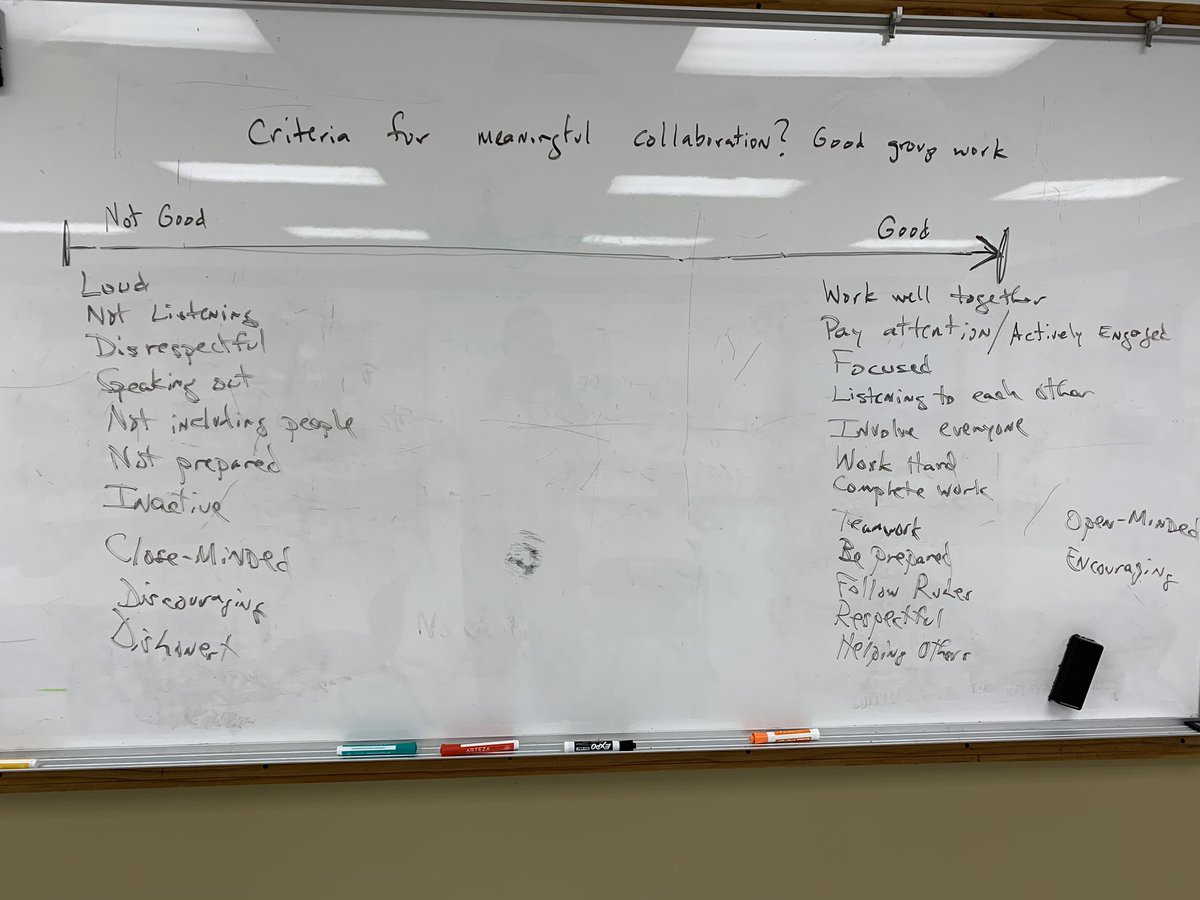 Criteria for meaningful collaboration? Good group work
Not Good
Good
Loud
Not Listening
Disrespectful
Speaking out
Not including people
Not prepared
Inactive
Close-Minded
Discouraging
Dishonest
Work well together
Pay attention/Actively Engaged
Focused
Listening to each other
Involve everyone
Work Hard
Complete work
Teamwork
Be prepared
Follow Rules
Respectful
Helping Others
Open-Minded
Encouraging
ARTEZA
EXPO